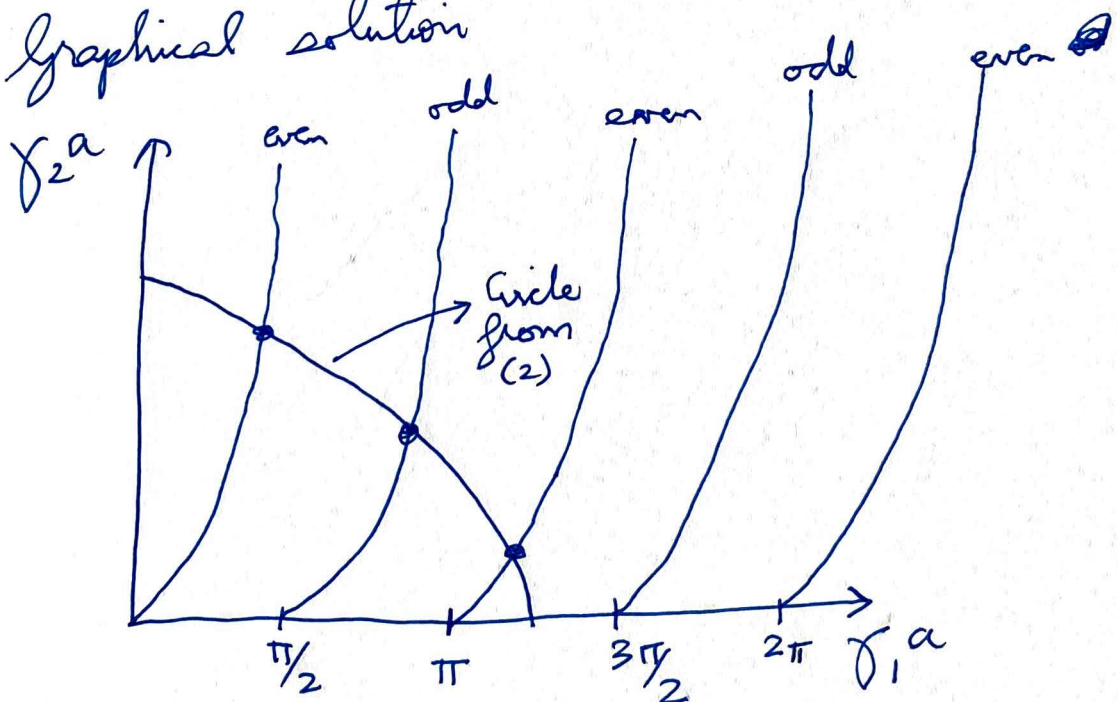 Graphical solution
γ₂a
even
odd
even
odd
even
Circle
from
(2)
π/2
π
3π/2
2π
γ₁a